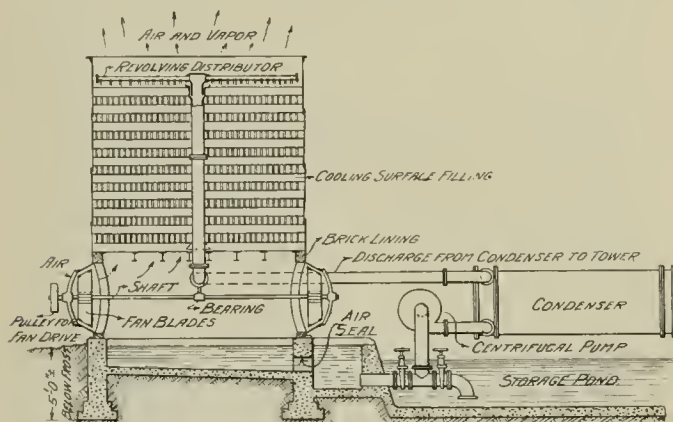 AIR AND VAPOR
REVOLVING DISTRIBUTOR
COOLING SURFACE FILLING
BRICK LINING
DISCHARGE FROM CONDENSER TO TOWER
AIR
SHAFT
BEARING
CONDENSER
PULLEY FOR
FAN DRIVE
FAN BLADES
AIR
SEAL
CENTRIFUGAL PUMP
STORAGE POND
5'0"±
BELOW FROST